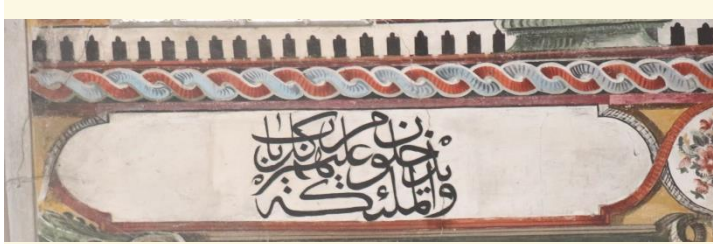 والملئكة يدخلون عليهم من كل باب